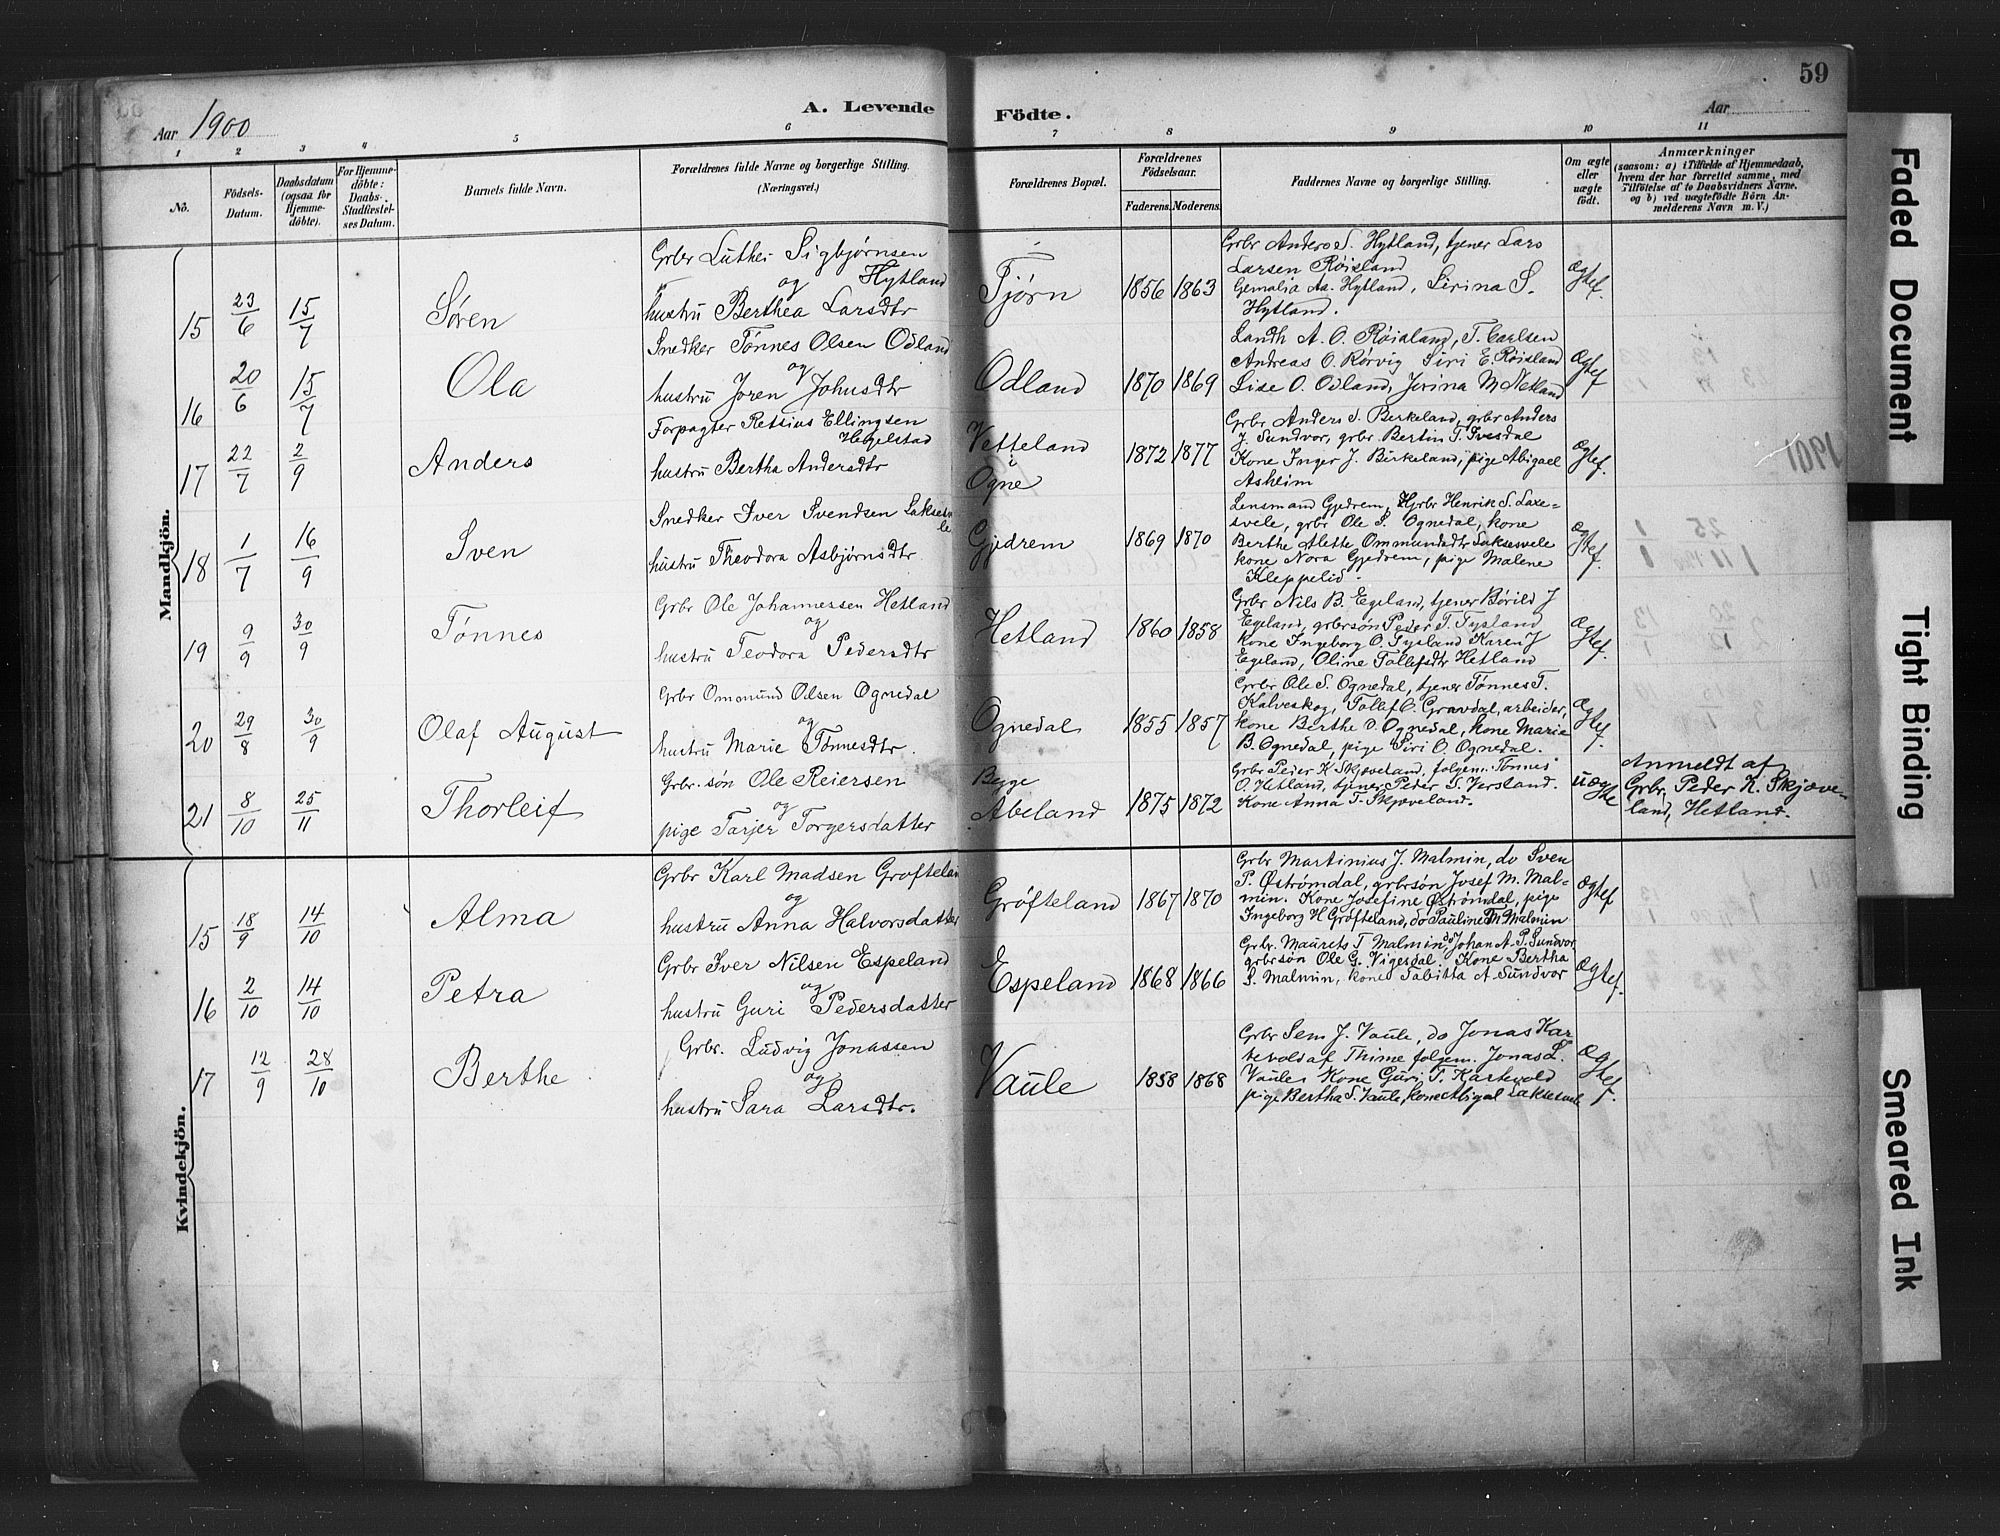 59
Aar 1900
A. Levende Födte.
Aar
1 2 3 4 5 6 7 8 9 10 11
No.
Födsels-Datum.
Daabsdatum (ogsaa for Hjemme-döbte).
For Hjemme-döbte: Daabs-Stadfæstel-ses Datum.
Barnets fulde Navn.
Forældrenes fulde Navne og borgerlige Stilling. (Næringsvei.)
Forældrenes Bopæl.
Forældrenes Födselsaar.
Faderens. Moderens.
Faddernes Navne og borgerlige Stilling.
Om ægte eller uægte födt.
Anmærkninger
(saasom: a) i Tilfælde af Hjemmedaab,
hvem der har forrettet samme, med
Tilföielse af to Daabsvidners Navne,
og b) ved uægtefödte Börn An-
melderens Navn m. V.)
Mandkjön.
15 23/6 15/7 Søren
Grbr Luther Sigbjørnsen
og Hytland
hustru Berthea Larsdtr
Tjörn 1856 1863
Grbr Anders S. Hytland, tjener Lars
Larsen Røisland
Gemalia Aa. Hytland, Sirina S.
Hytland.
Ægtef.
16 20/6 15/7 Ola
Snedker Tønnes Olsen Odland
og
hustru Joren Johnsdtr
Odland 1870 1869
Landh A. O. Røisland, T. Carlsen
Andreas O. Rørvig Siri E. Røisland
Lise O. Odland, Jorina M Netland
Ægtef
17 22/7 2/9 Anders
Forpagter Retsius Ellingsen
Hegelstad
hustru Bertha Andersdtr
Vetteland i Ogne 1872 1877
Grbr Anders S. Birkeland, grbr Anders
J. Sundvor, grbr. Bertin T. Ivesdal
Kone Inger J. Birkeland, pige Abigael
Asheim
Ægtef.
18 1/7 16/9 Sven
Snedker Iver Svendsen Laksesvele
hustru Theodora Asbjørnsdtr
Gjedrem 1869 1870
Lensmand Gjedrem, grbr Henrik S. Laxe-
svele, grbr Ole S. Ognedal, kone
Berthe Alette Ommundsdtr Laksesvele
kone Nora Gjedrem, pige Malene
Kleppelid.
Ægtef.
19 9/9 30/9 Tønnes
Grbr Ole Johannessen Hetland
og
hustru Teodora Pedersdtr
Hetland 1860 1858
Grbr Nils B. Egeland, tjener Børild J
Egeland, grbrsøn Peder T. Tysland
kone Ingeborg O. Tysland Karen J
Egeland, Oline Tollefsdtr Hetland
Ægtef.
20 29/8 30/9 Olaf August
Grbr Ommund Olsen Ognedal
og
hustru Marie Tønnesdtr.
Ognedal 1855 1857
Grbr Ole S. Ognedal, tjener Tønnes T.
Kalveskog, Tollef O. Gravdal, arbeider,
kone Berthe O. Ognedal, kone Marie
B. Ognedal, pige Siri O. Ognedal.
Ægtef.
21 8/10 25/11 Thorleif
Grbr. søn Ole Reiersen
og
pige Tarjer Torgersdatter
Begge Abeland 1875 1872
Grbr Peder K Skjæveland, folgem. Tønnes
O. Hetland, tjener Peder S. Versland.
Kone Anna T. Skjæveland.
uægte
Anmeldt af
Grbr. Peder K. Skjæve-
land, Hetland.
Kvindekjön.
15 18/9 14/10 Alma
Grbr Karl Madsen Grøfteland
og
hustru Anna Halvorsdatter
Grøfteland 1867 1870
Grbr Martinius J. Malmin, do Sven
P. Østrømdal, grbrsön Josef M. Mal-
min. Kone Josefine Østrømdal, pige
Ingeborg H Grøfteland, do Pauline M. Malmin
Ægtef
16 2/10 14/10 Petra
Grbr Iver Nilsen Espeland
og
hustru Guri Pedersdatter
Espeland 1868 1866
Grbr. Maurets T Malmin, do Johan A. P. Sundvor
grbrsøn Ole G. Vigesdal. Kone Bertha
S. Malmin, kone Tabitta A Sundvor
Ægtef.
17 12/9 28/10 Berthe
Grbr. Ludvig Jonassen
og
hustru Sara Larsdtr.
Vaule 1858 1868
Grbr Sem J. Vaule, do Jonas Kar
tevold af Thime folgem. Jonas L.
Vaule, Kone Guri T. Kartevold
pige Bertha S. Vaule, kone Abigal Laksesvele
Ægtef.
1901
Faded Document
Tight Binding
Smeared Ink